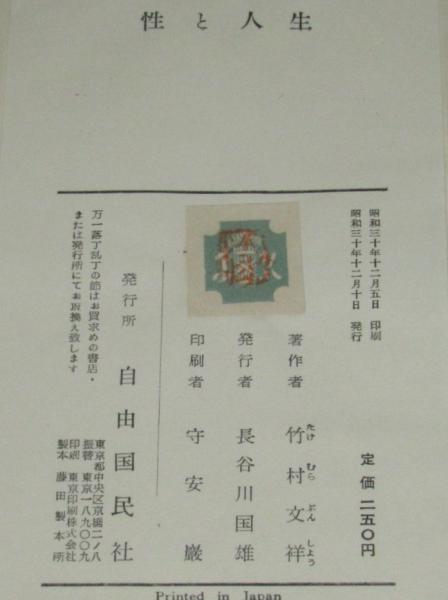 性と人生
昭和三十年十二月五日 印刷
昭和三十年十二月十日 発行
定価 二五〇円
著作者 竹村文祥
たけ むら ぶん しよう
発行者 長谷川国雄
印刷者 守安巌
発行所 自由国民社
東京都中央区京橋二ノ八
振替 東京一八九〇〇九
印刷 東京印刷株式会社
製本 藤田製本所
万一落丁乱丁の節はお買求めの書店・
または発行所にてお取換え致します
Printed in Japan